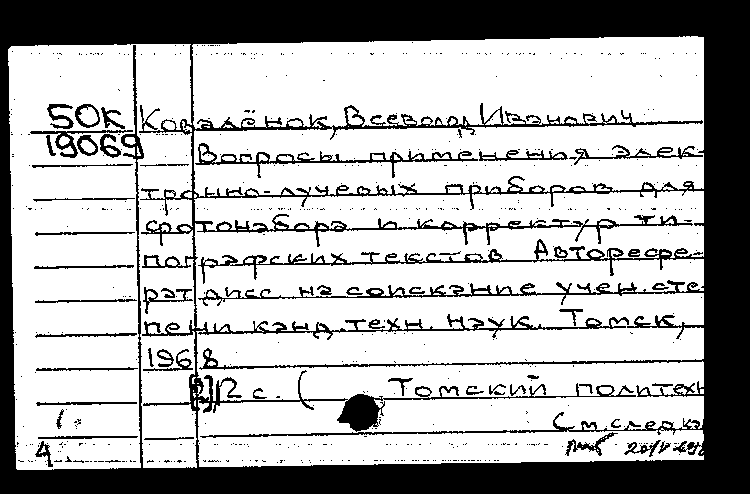 50К Ковалёнок, Всеволод Иванович
19069 Вопросы применения элек-
тронно-лучевых приборов для
фотонабора и корректур ти-
пографских текстов Авторефе-
рат дисс на соискание учен. сте-
пени канд. техн. наук. Томск,
1968
12 с. ( Томский политехн
См. след. ка
4